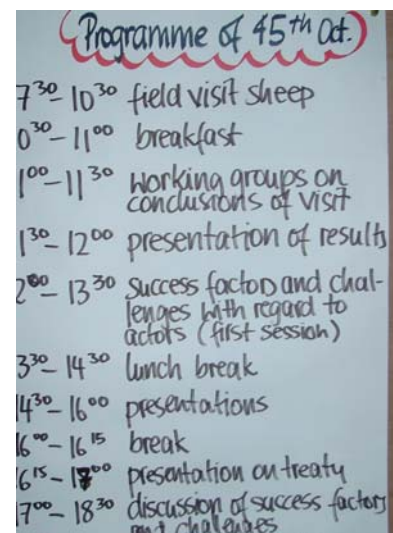 Programme of 45th Oct.
7³⁰ – 10³⁰ field visit sheep
0³⁰ – 11⁰⁰ breakfast
1⁰⁰ – 11³⁰ working groups on
conclusions of visit
1³⁰ – 12⁰⁰ presentation of results
2⁰⁰ – 13³⁰ success factors and chal-
lenges with regard to
actors (first session)
3³⁰ – 14³⁰ lunch break
14³⁰ – 16⁰⁰ presentations
16⁰⁰ – 16¹⁵ break
6¹⁵ – 17⁰⁰ presentation on treaty
17⁰⁰ – 18³⁰ discussion of success factors
and challenges